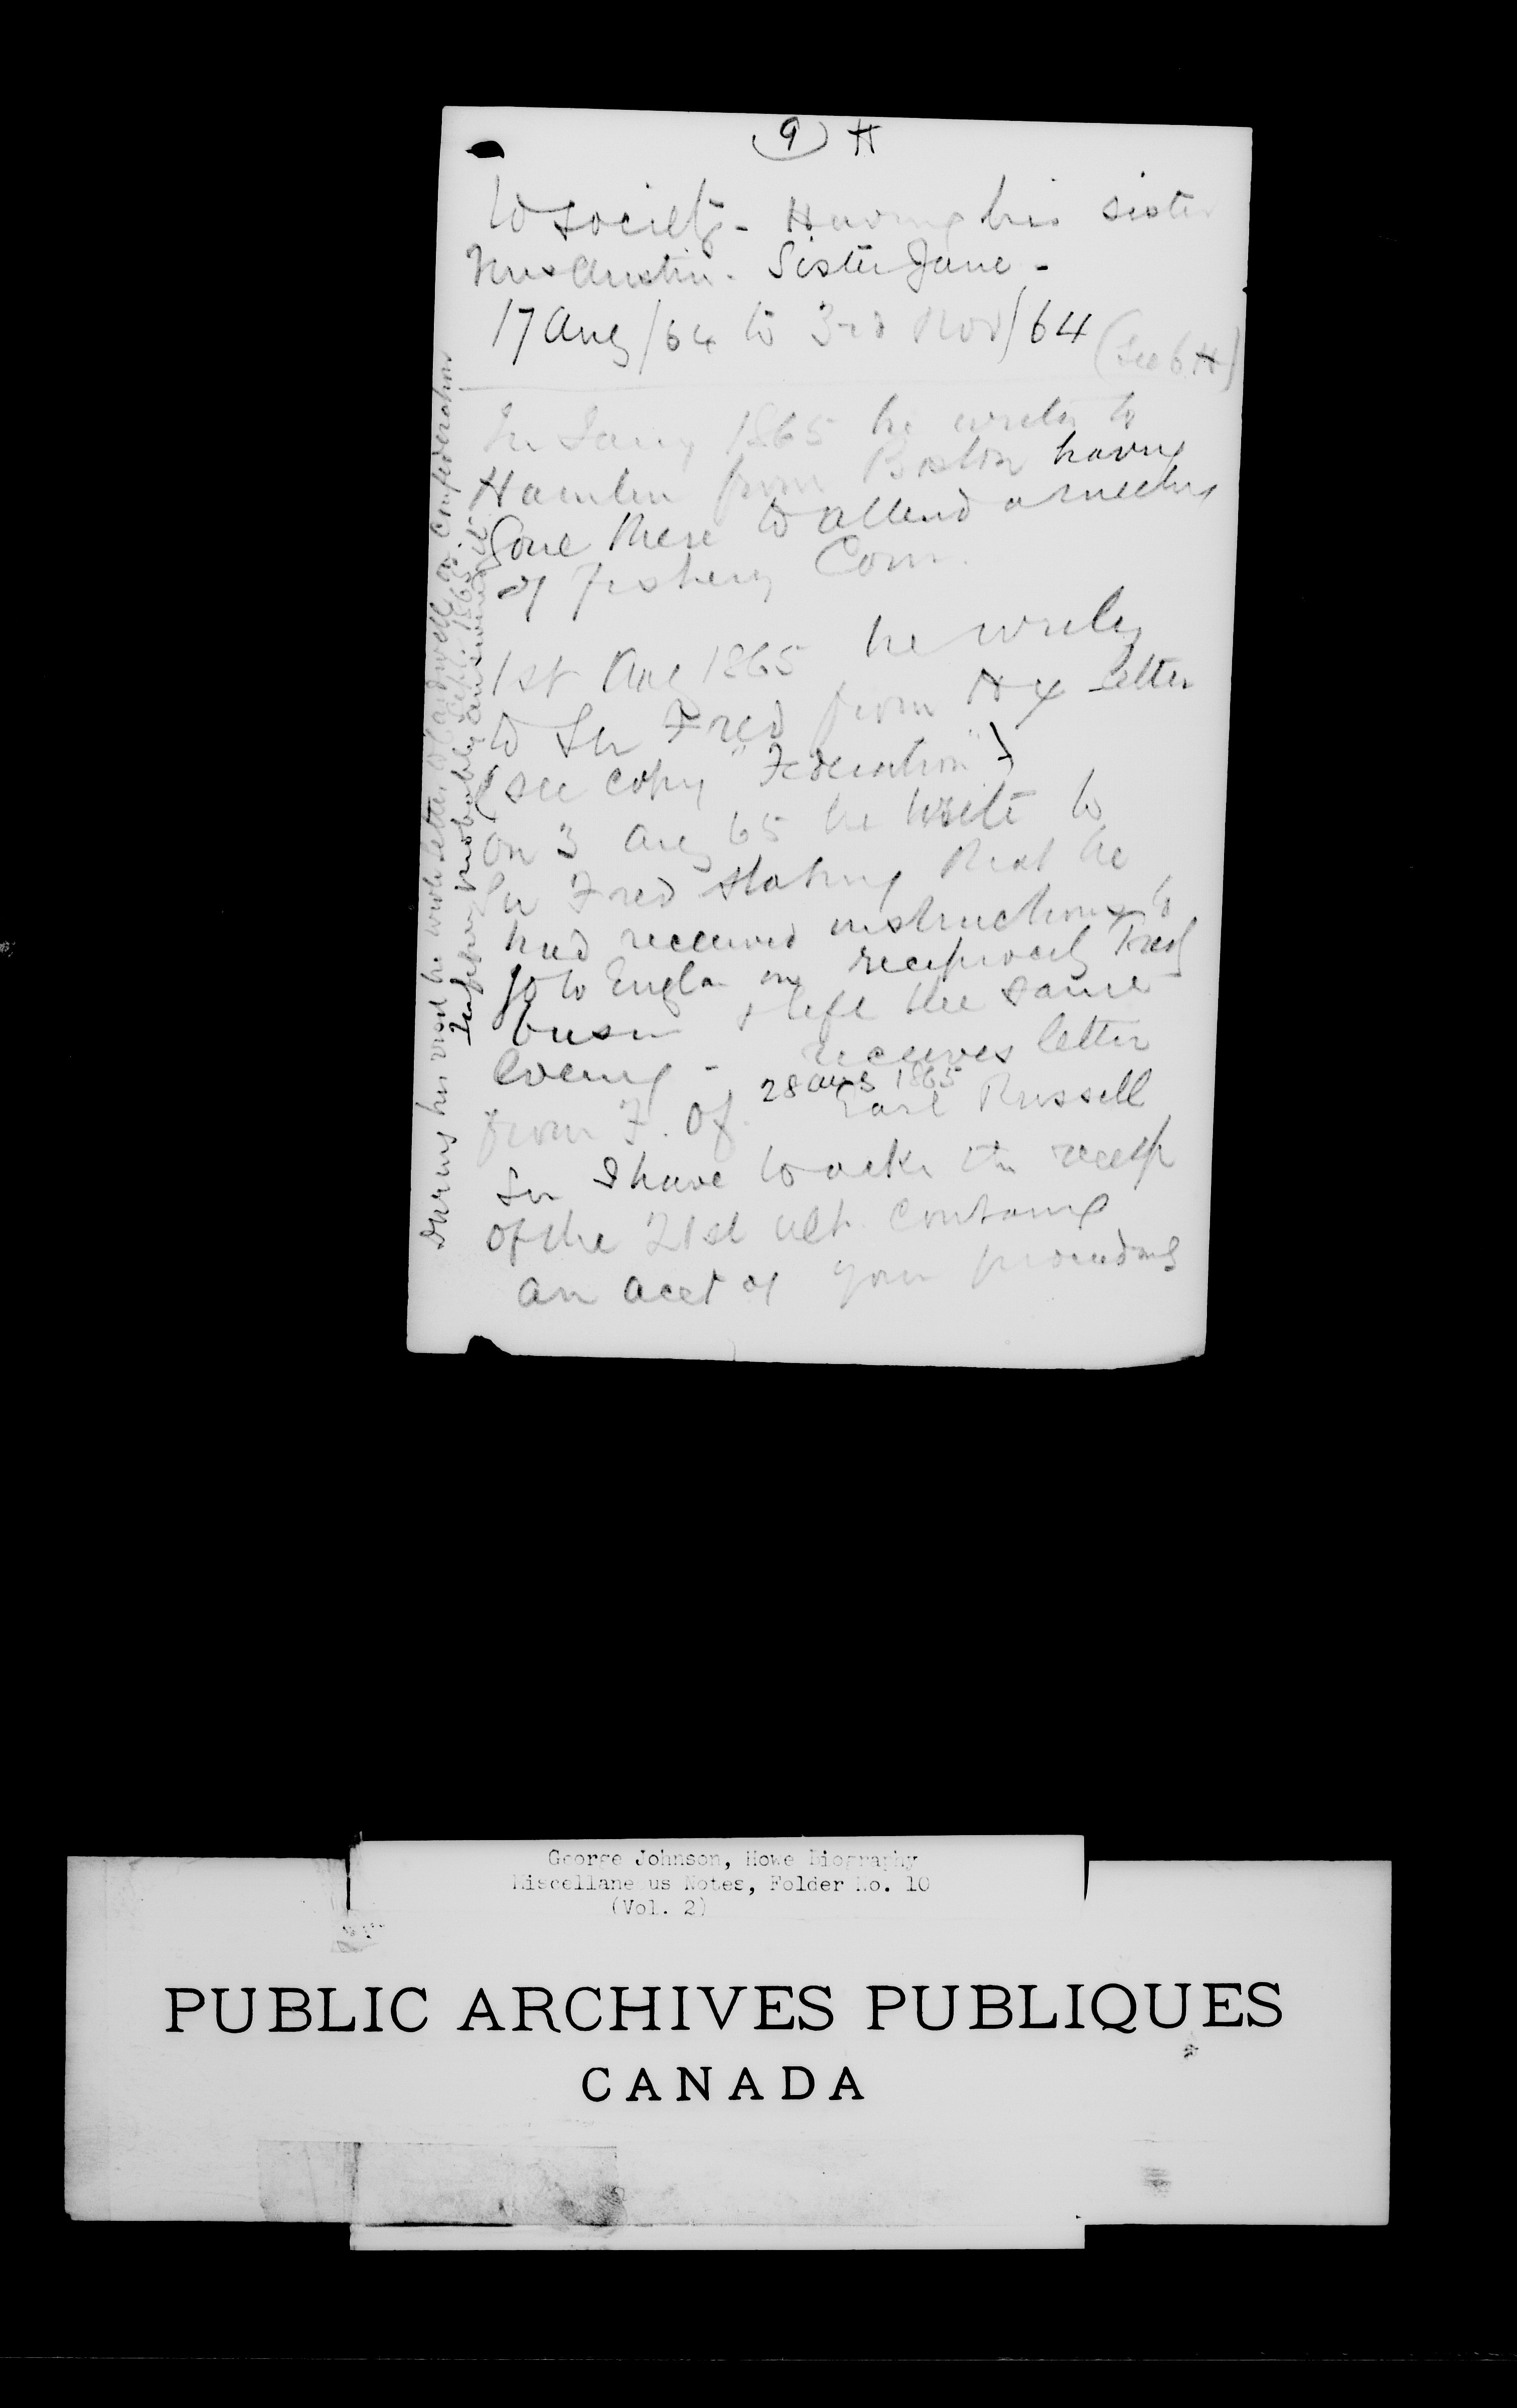 9) H
to society - Having his sister
Mrs Austin - Sister Jane -
17 Aug/64 to 3rd Nov/64 (See 6 H)
In Jany 1865 he writes to
Hamlin from Boston having
gone there to attend a meeting
of Fishery Com.
1st Aug 1865 he writes
to Sir Fred from Hx letter
(see copy "Federation")
on 3 Aug 65 he write to
Sir Fred stating that he
had received instructions to
go to Englan on reciprocity Treaty
busin & left the same
evening - receives letter
28 Aug 1865
from F. Of. Earl Russell
Sir I have to ackn the receip
of the 21st ult. containg
an acct of your proceedings
During his visit he wrote letter to Cardwell on Confederation
Sept. 1865
Tupper probably answered it
George Johnson, Howe Biography
Miscellane us Notes, Folder No. 10
(Vol. 2)
PUBLIC ARCHIVES PUBLIQUES
CANADA